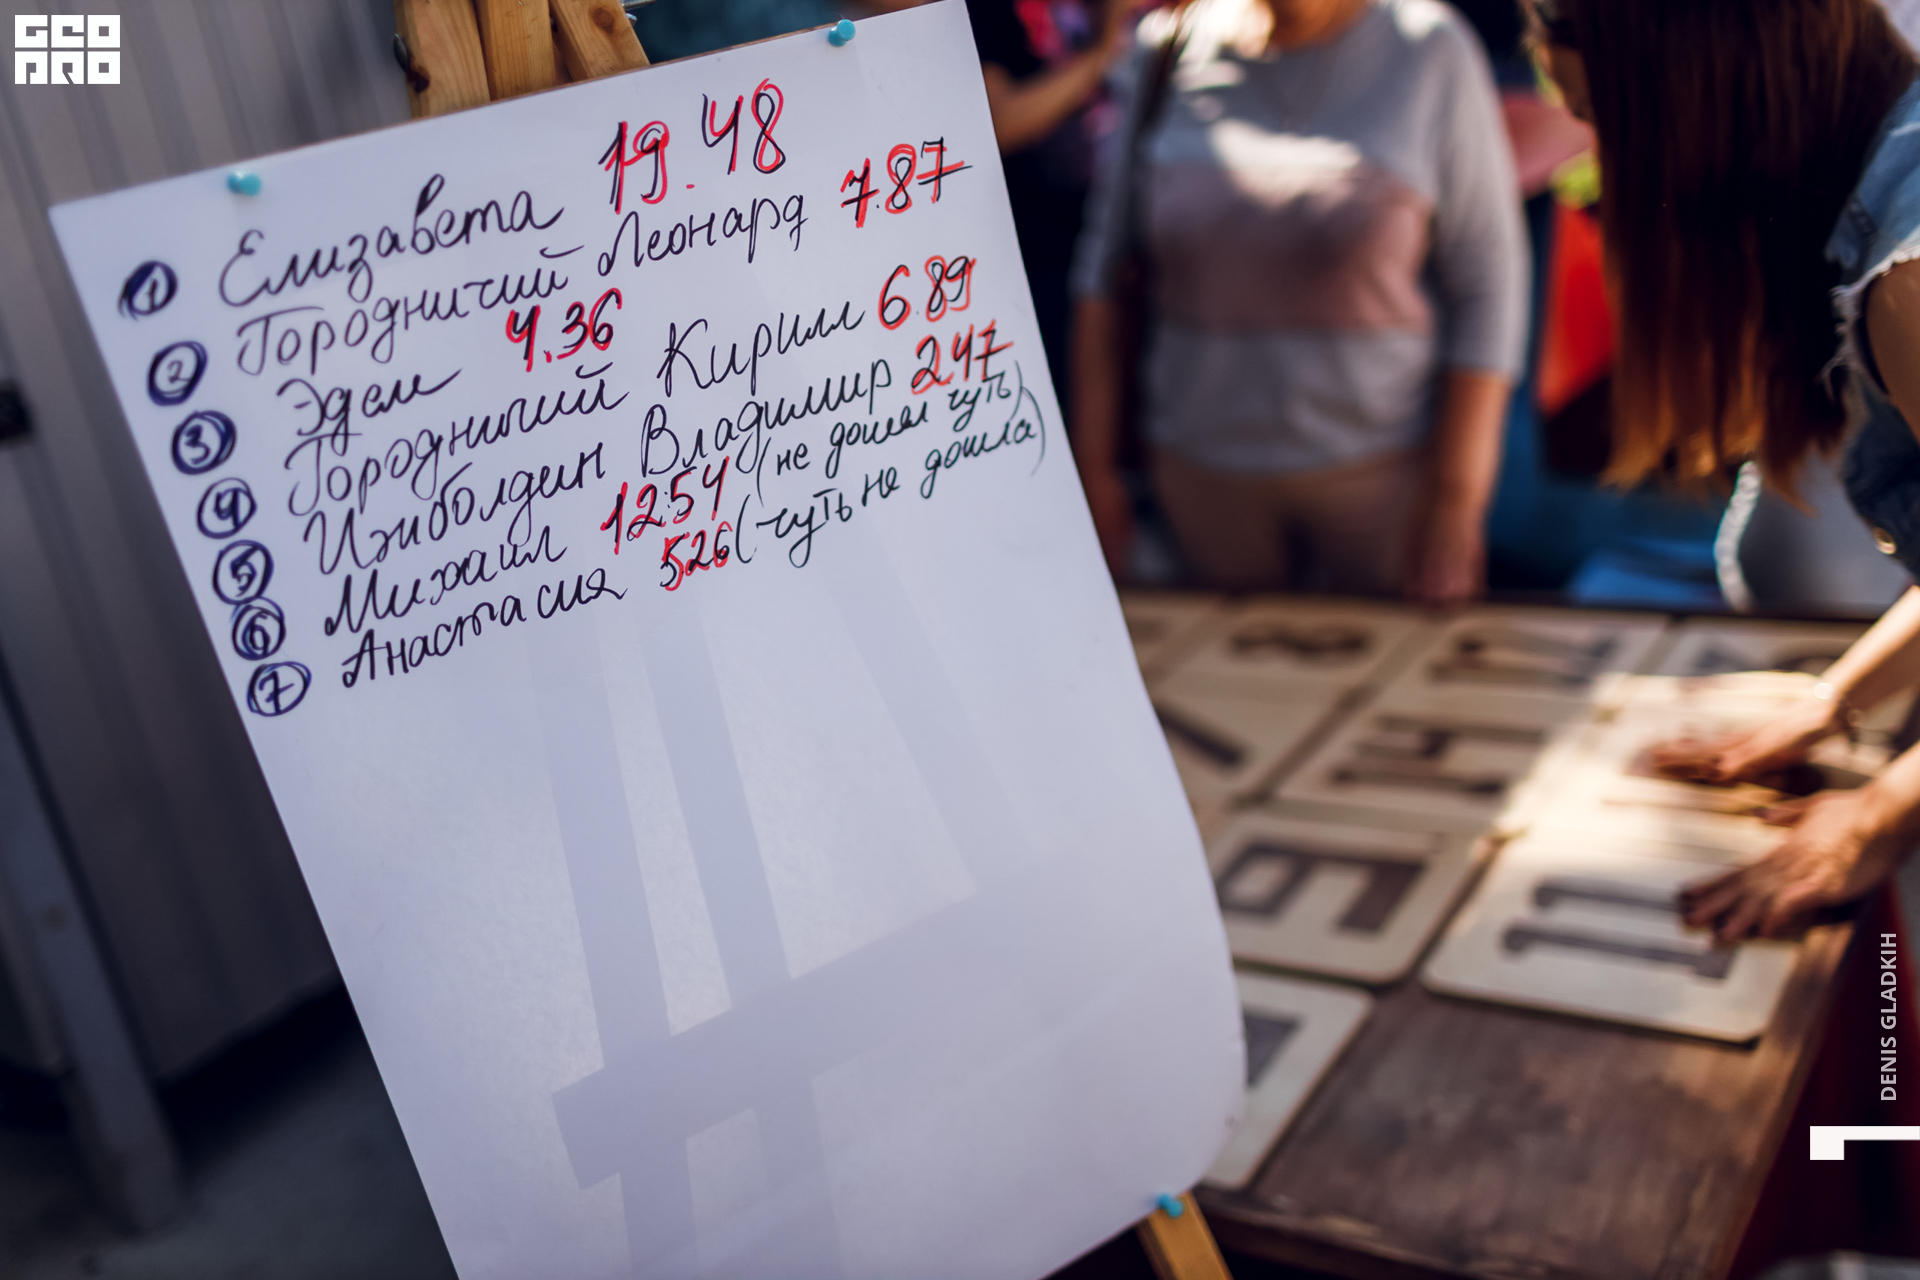 GEO
PRO
① Елизавета 19.48
② Городничий Леонард 7.87
③ Эдем 4.36
④ Городничий Кирилл 6.89
⑤ Изиболдин Владимир 2.47
⑥ Михаил 12:54 (не дошел чуть)
⑦ Анастасия 5.26 (чуть не дошла)
11
DENIS GLADKIH